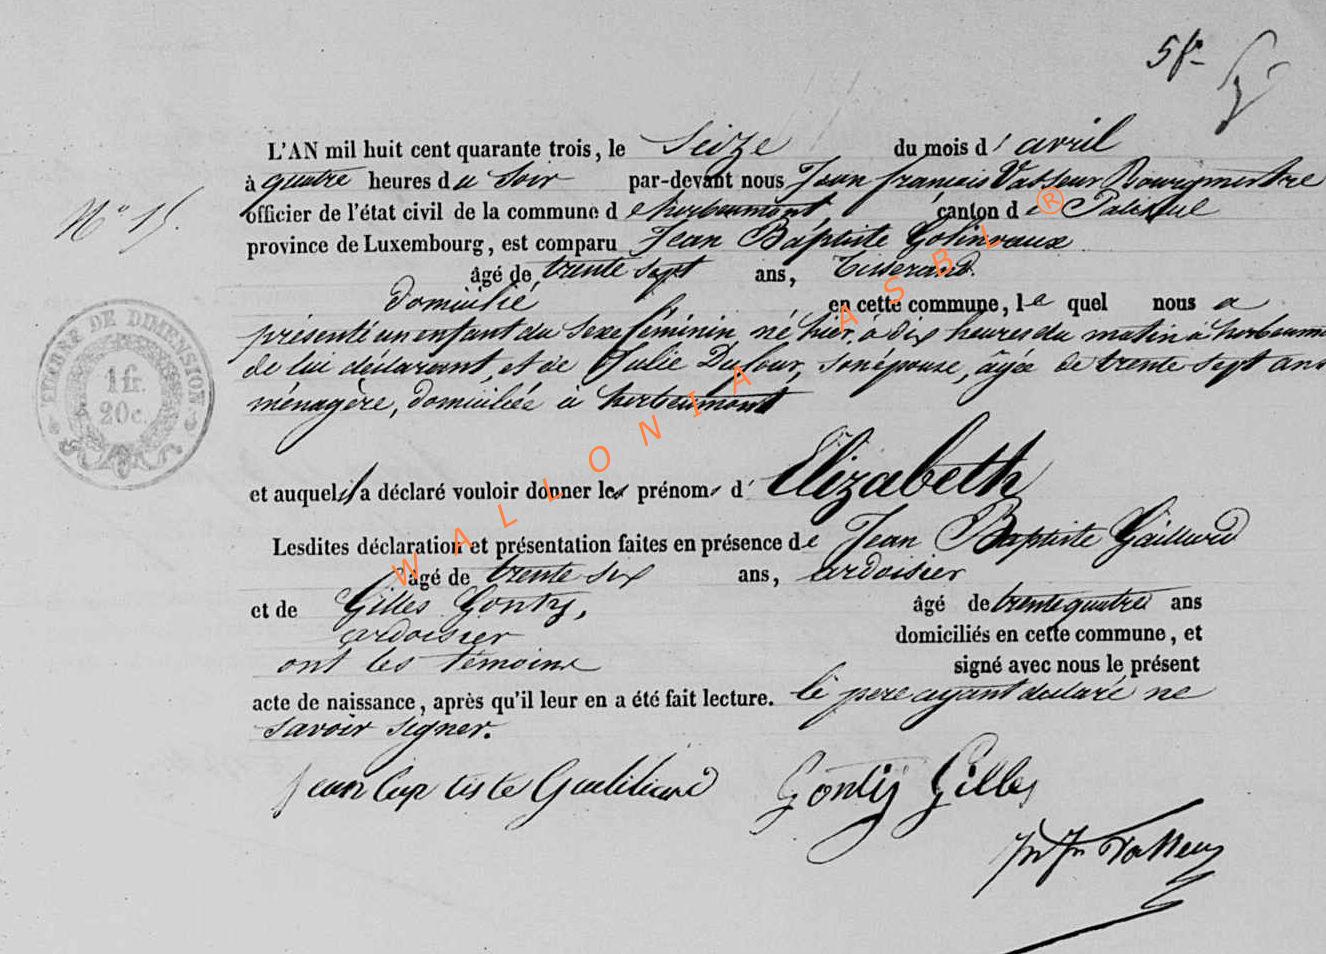 5 fr
L'AN mil huit cent quarante trois, le Seize du mois d' avril
à quatre heures du Soir par-devant nous Jean françois Vasseur Bourgmestre
officier de l'état civil de la commune de herbeumont, canton de Paliseul
N° 15.
province de Luxembourg, est comparu Jean Baptiste Golinvaux
âgé de trente sept ans, Tisserand
domicilié en cette commune, lequel nous a
présenté un enfant du sexe féminin né hier, à dix heures du matin à herbeumont
de lui déclarant, et de Julie Dufour, son épouse, âgée de trente sept ans
ménagère, domiciliée à herbeumont
TIMBRE DE DIMENSION
1 fr.
20 c.
et auquel il a déclaré vouloir donner les prénoms d' Elizabeth
Lesdites déclaration et présentation faites en présence de Jean Baptiste Gaillard
âgé de trente six ans, ardoisier
et de Gilles Gonty, âgé de trente quatre ans
ardoisier domiciliés en cette commune, et
ont les témoins signé avec nous le présent
acte de naissance, après qu'il leur en a été fait lecture. le pere ayant declaré ne
savoir signer.
jean bap tiste Gailliard Gontij Gilles
Jn Fn Vasseur
WALLONIA ASBL ®